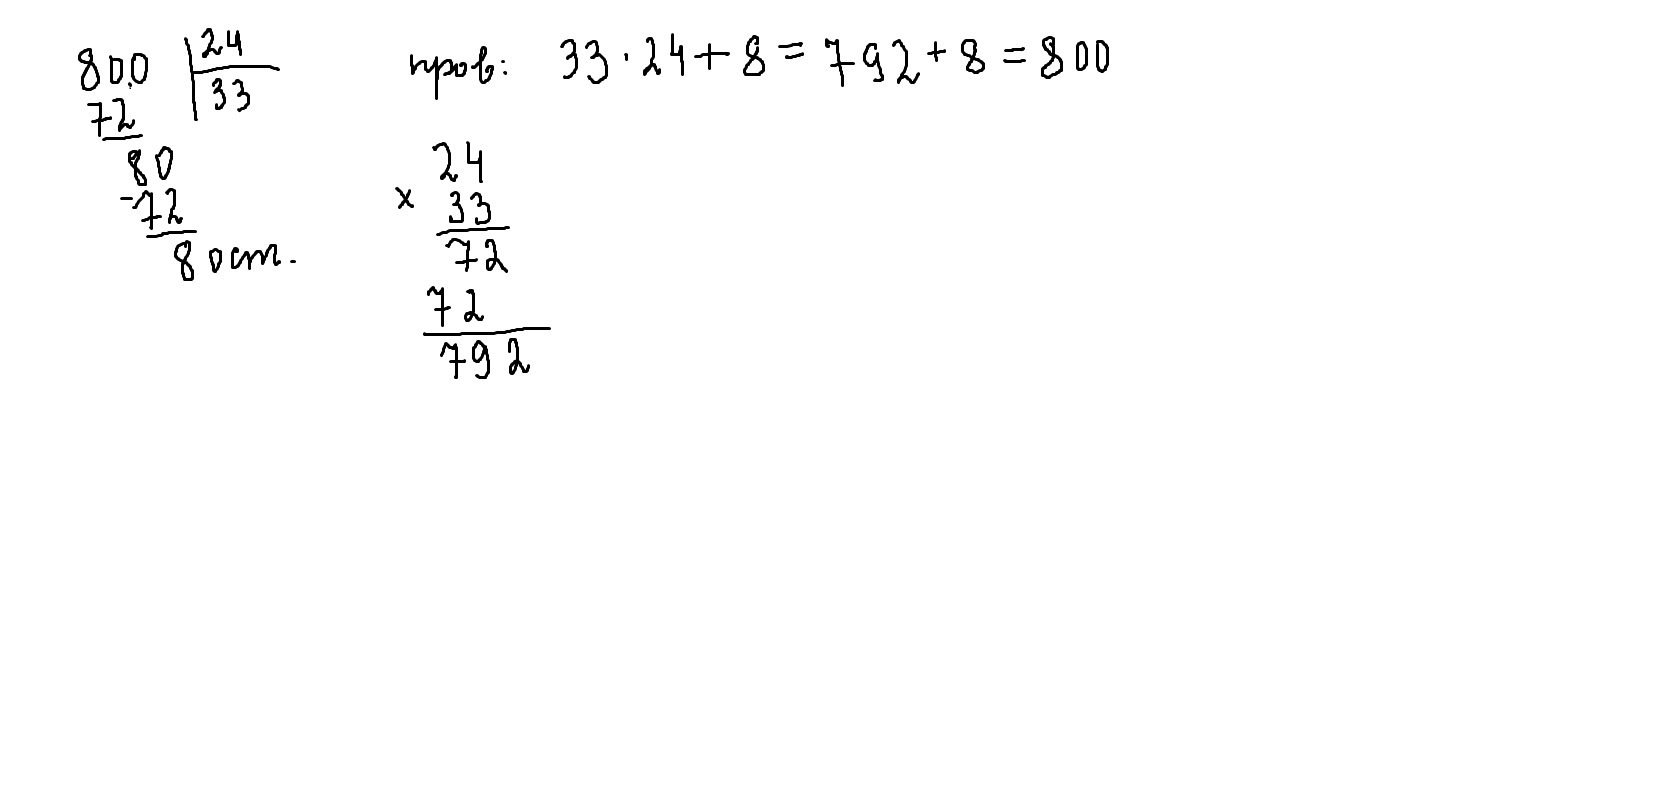 800 24
33
72
80
-72
8 ост.
пров: 33 · 24 + 8 = 792 + 8 = 800
24
× 33
72
72
792